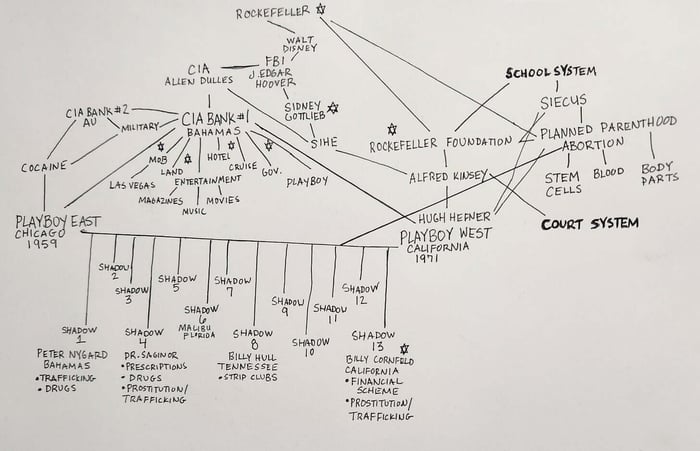 ROCKEFELLER
WALT
DISNEY
FBI
J. EDGAR
HOOVER
CIA
ALLEN DULLES
SIDNEY
GOTTLIEB
SIHE
SCHOOL SYSTEM
SIECUS
PLANNED PARENTHOOD
ABORTION
STEM
CELLS
BLOOD
BODY
PARTS
ROCKEFELLER FOUNDATION
ALFRED KINSEY
COURT SYSTEM
HUGH HEFNER
PLAYBOY WEST
CALIFORNIA
1971
CIA BANK #2
AU
MILITARY
CIA BANK #1
BAHAMAS
COCAINE
MOB
LAND
HOTEL
CRUISE
GOV.
LAS VEGAS
ENTERTAINMENT
PLAYBOY
MAGAZINES
MOVIES
MUSIC
PLAYBOY EAST
CHICAGO
1959
SHADOW
1
PETER NYGARD
BAHAMAS
•TRAFFICKING
•DRUGS
SHADOW
2
SHADOW
3
SHADOW
4
DR. SAGINOR
•PRESCRIPTIONS
•DRUGS
•PROSTITUTION/
TRAFFICKING
SHADOW
5
SHADOW
6
MALIBU
FLORIDA
SHADOW
7
SHADOW
8
BILLY HULL
TENNESSEE
•STRIP CLUBS
SHADOW
9
SHADOW
10
SHADOW
11
SHADOW
12
SHADOW
13
BILLY CORNFELD
CALIFORNIA
•FINANCIAL
SCHEME
•PROSTITUTION/
TRAFFICKING